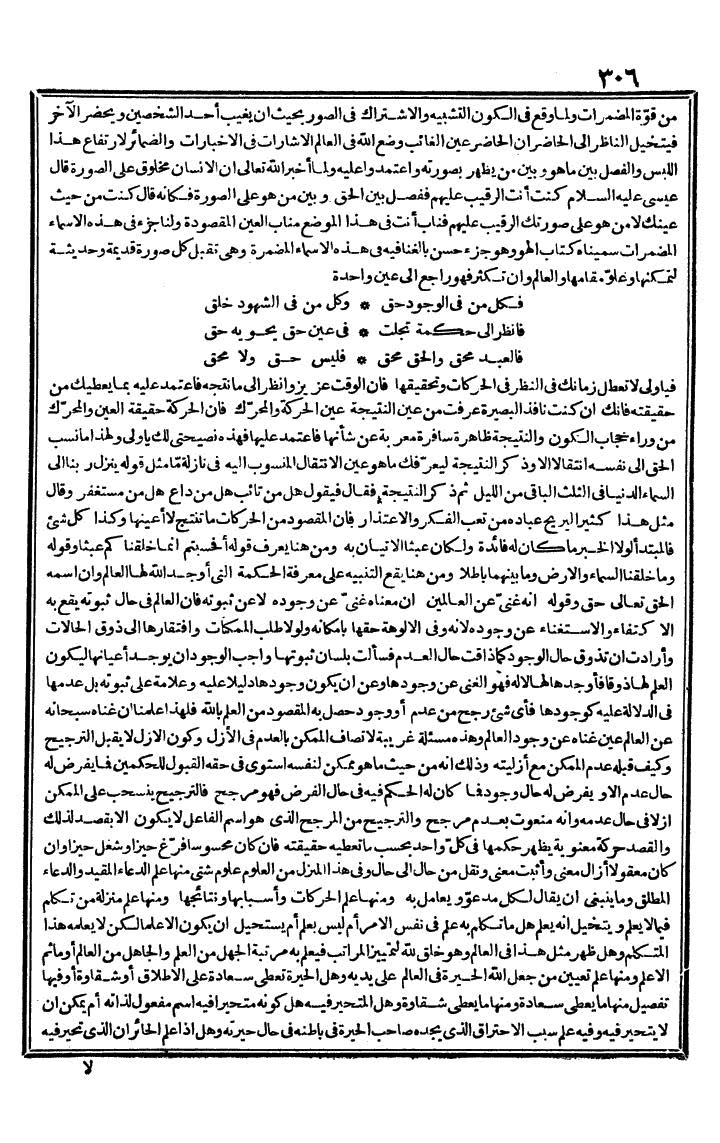 ٣٠٦
من قوّة المضمرات ولما وقع فى الكون التشبيه والاشتراك فى الصور بحيث ان يغيب أحد الشخصين ويحضر الآخر
فيتخيل الناظر الى الحاضر ان الحاضر عين الغائب وضع الله فى العالم الاشارات فى الاخبارات والضمائر لارتفاع هذا
اللبس والفصل بين ما هو وبين من يظهر بصورته واعتمد واعليه ولما أخبر الله تعالى ان الانسان مخلوق على الصورة قال
عيسى عليه السلام كنت أنت الرقيب عليهم ففصل بين الحق وبين من هو على الصورة فكانه قال كنت من حيث
عينك لا من هو على صورتك الرقيب عليهم فناب أنت فى هذا الموضع مناب العين المقصودة ولنا جزء فى هذه الاسماء
المضمرات سميناه كتاب الهو وهو جزء حسن بالغنا فيه فى هذه الاسماء المضمرة وهى تقبل كل صورة قديمة وحديثة
لتمكنها وعلوّ مقامها والعالم وان تكثر فهو راجع الى عين واحدة
فكل من فى الوجود حق * وكل من فى الشهود خلق
فانظر الى حكمة تجلت * فى عين حق يحويه حق
فالعبد محق والحق محق * فليس حق ولا محق
فياولى لا تعطل زمانك فى النظر فى الحركات وتحقيقها فان الوقت عزيز وانظر الى ما تنتجه فاعتمد عليه بما يعطيك من
حقيقته فانك ان كنت نافذ البصيرة عرفت من عين النتيجة عين الحركة والمحرّك فان الحركة حقيقة العين والمحرّك
من وراء حجاب الكون والنتيجة ظاهرة سافرة معربة عن شأنها فاعتمد عليها فهذه نصيحتى لك ياولى ولهذا ما نسب
الحق الى نفسه انتقالا الا وذكر النتيجة ليعرّفك ما هو عين الانتقال المنسوب اليه فى نازلة مّا مثل قوله ينزل ربنا الى
السماء الدنيا فى الثلث الباقى من الليل ثم ذكر النتيجة فقال فيقول هل من تائب هل من داع هل من مستغفر وقال
مثل هذا كثيرا ليريح عباده من تعب الفكر والاعتذار فان المقصود من الحركات ما تنتج لا أعينها وكذا كل شئ
فالمبتدأ لولا الخبر ما كان له فائدة ولكان عبثا الاتيان به ومن هنا يعرف قوله أفحسبتم انما خلقناكم عبثا وقوله
وما خلقنا السماء والارض وما بينهما باطلا ومن هنا يقع التنبيه على معرفة الحكمة التى أوجد الله لها العالم وان اسمه
الحق تعالى حق وقوله انه غنىّ عن العالمين ان معناه غنىّ عن وجوده لا عن ثبوته فان العالم فى حال ثبوته يقع به
الاكتفاء والاستغناء عن وجوده لانه وفى الالوهة حقها بامكانه ولولا طلب الممكنات وافتقارها الى ذوق الحالات
وأرادت ان تذوق حال الوجود كما ذاقت حال العدم فسألت بلسان ثبوتها واجب الوجود ان يوجد أعيانها ليكون
العلم لها ذوقا فأوجدها لها لا له فهو الغنى عن وجودها وعن ان يكون وجودها دليلا عليه وعلامة على ثبوته بل عدمها
فى الدلالة عليه كوجودها فأى شئ رجح من عدم أو وجود حصل به المقصود من العلم بالله فلهذا علمنا ان غناه سبحانه
عن العالم عين غناه عن وجود العالم وهذه مسئلة غريبة لاتصاف الممكن بالعدم فى الأزل وكون الازل لا يقبل الترجيح
وكيف قبله عدم الممكن مع أزليته وذلك انه من حيث ما هو ممكن لنفسه استوى فى حقه القبول للحكمين فما يفرض له
حال عدم الا ويفرض له حال وجود فما كان له الحكم فيه فى حال الفرض فهو مرجح فالترجيح ينسحب على الممكن
ازلا فى حال عدمه وانه منعوت بعدم مرجح والترجيح من المرجح الذى هو اسم الفاعل لا يكون الا بقصد لذلك
والقصد حركة معنوية يظهر حكمها فى كلّ واحد بحسب ما تعطيه حقيقته فان كان محسوسا فرّغ حيزا وشغل حيزا وان
كان معقولا أزال معنى وأثبت معنى ونقل من حال الى حال وفى هذا المنزل من العلوم علوم شتى منها علم الدعاء المقيد والدعاء
المطلق وما ينبغى ان يقال لكل مدعوّ ويعامل به ومنها علم الحركات وأسبابها ونتائجها ومنها علم منزلة من تكلم
فيما لا يعلم ويتخيل انه يعلم هل ما تكلم به علم فى نفس الامر أم ليس بعلم أم يستحيل ان يكون الا علما لكن لا يعلمه هذا
المتكلم وهل ظهر مثل هذا فى العالم وهو خلق لله لتمييز المراتب فيعلم به مرتبة الجهل من العلم والجاهل من العالم أو ما ثم
الا علم ومنها علم تعيين من جعل الله الحيرة فى العالم على يديه وهل الحيرة تعطى سعادة على الاطلاق أو شقاوة أو فيها
تفصيل منها ما يعطى سعادة ومنها ما يعطى شقاوة وهل المتحير فيه هل كونه متحيرا فيه اسم مفعول لذاته أم يمكن ان
لا يتحير فيه وفيه علم سبب الاحتراق الذى يجده صاحب الحيرة فى باطنه فى حال حيرته وهل اذا علم الحائر ان الذى تحير فيه
لا